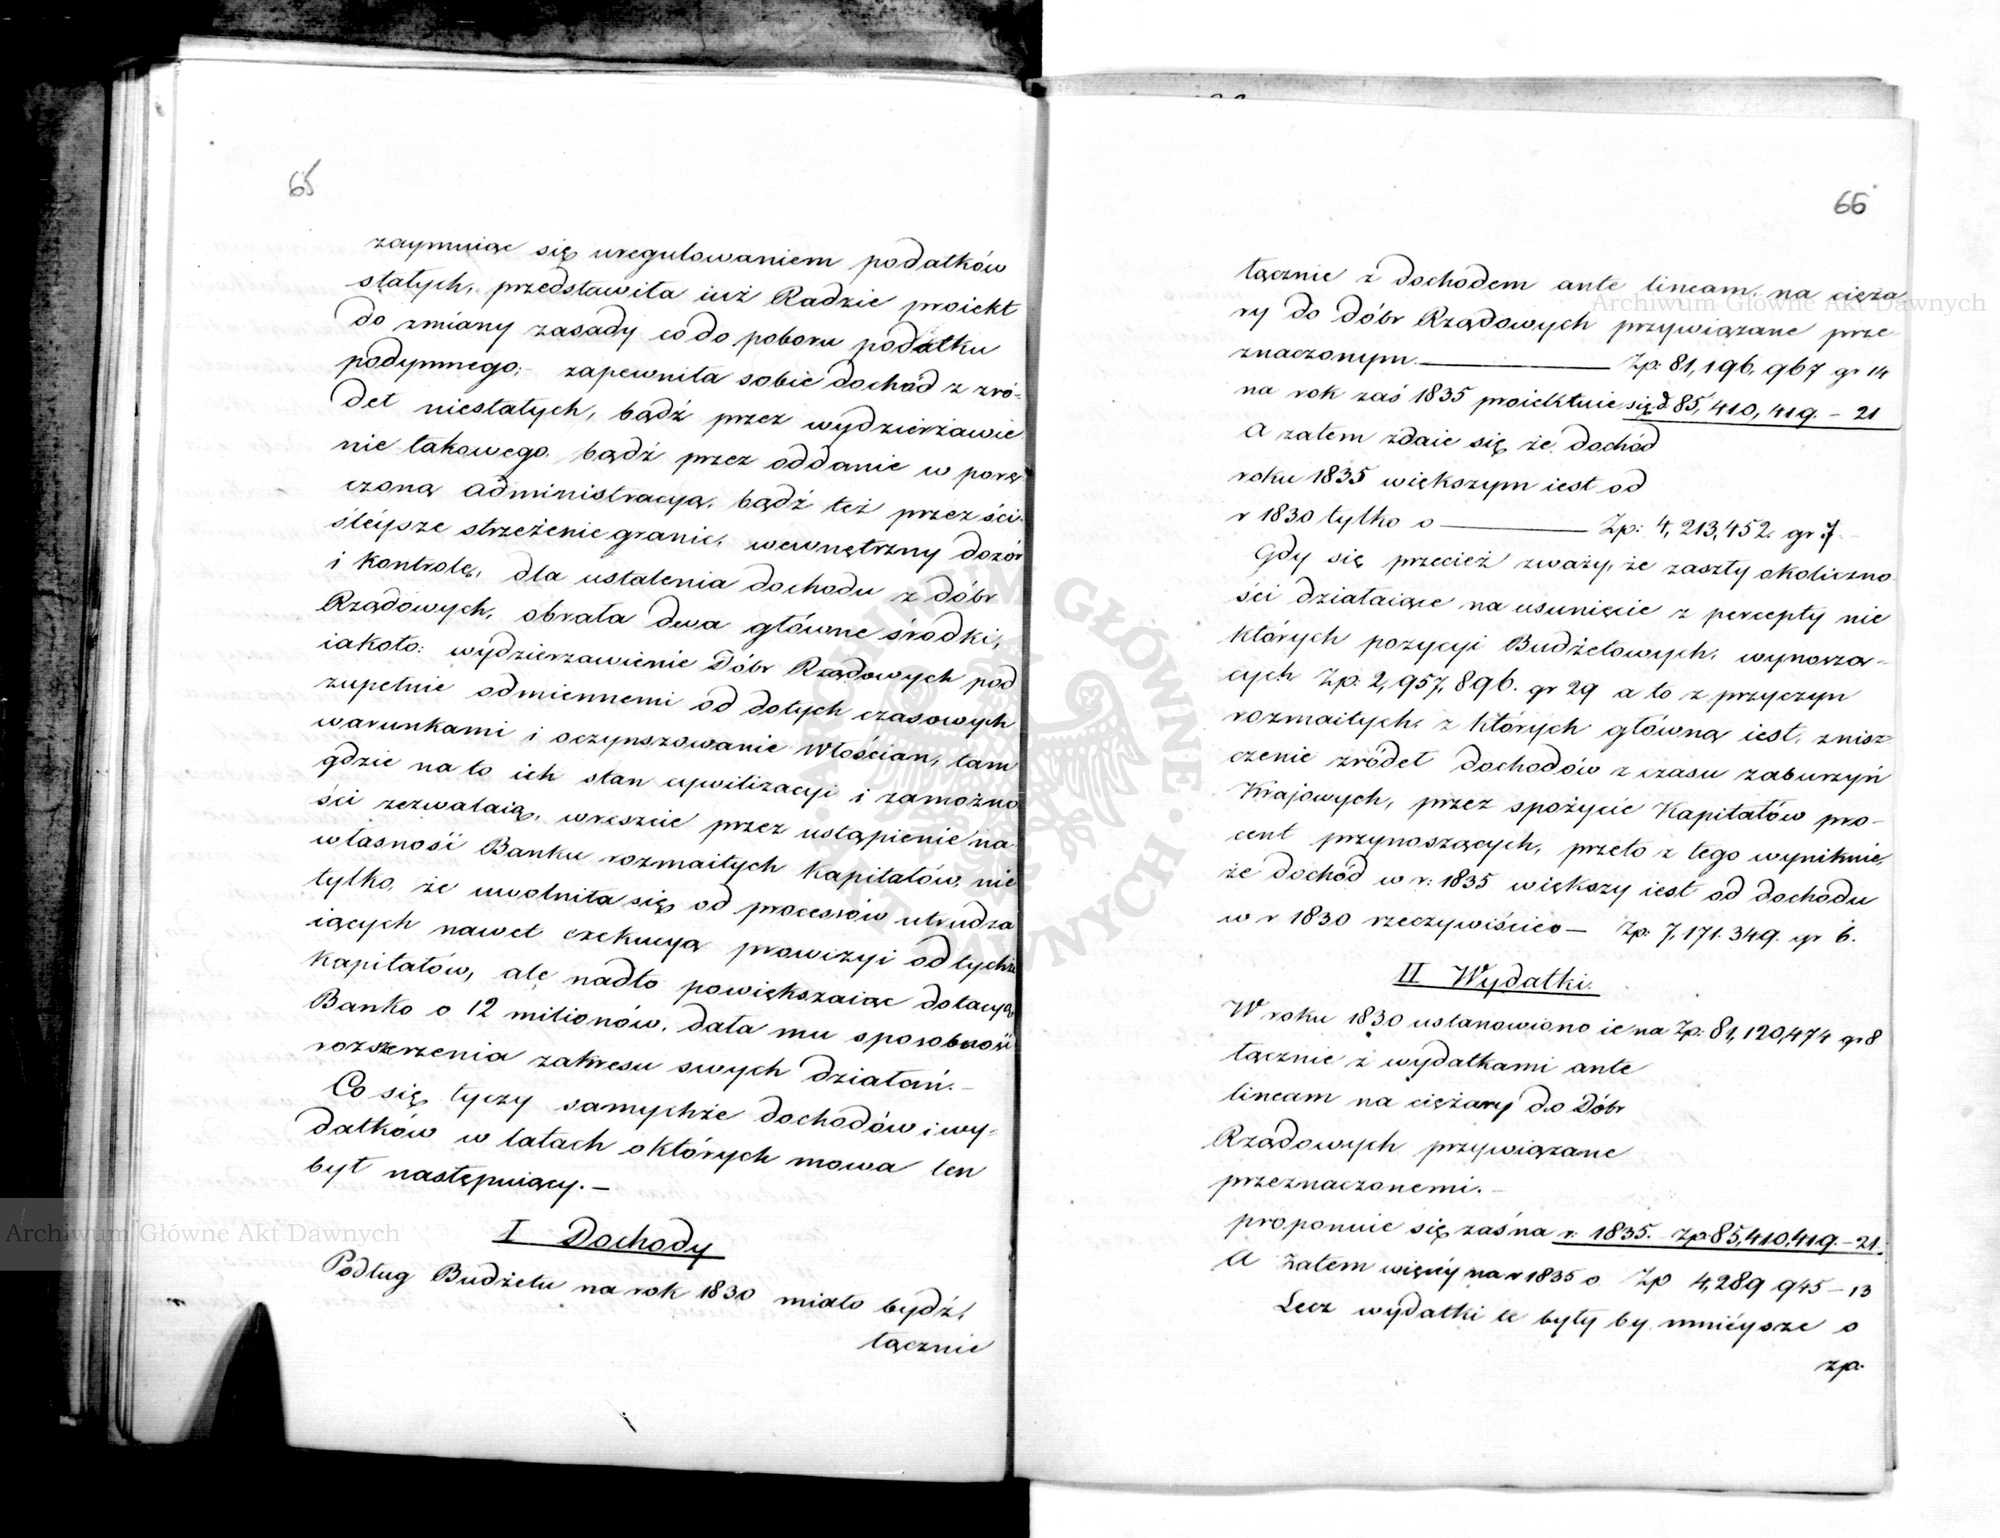 65
zaymuiąc się uregulowaniem podatków
stałych, przedstawiła iuż Radzie proiekt
do zmiany zasady co do poboru podatku
podymnego; zapewniła sobie dochód z zró-
deł niestałych, bądź przez wydzierżawie
nie takowego, bądź przez oddanie w porę
czoną administracyą, bądź też przez ści-
śléysze strzeżenie granic, wewnętrzny dozór
i kontrolę, dla ustalenia dochodu z dóbr
Rządowych, obrała dwa główne środki,
iakoto: wydzierzawienie Dóbr Rządowych pod
zupełnie odmiennemi od dotych czasowych
warunkami i oczynszowanie Włościan, tam
gdzie na to ich stan cywilizacyi i zamożno
ści zezwalaią, wreszcie przez ustąpienie na
własność Banku rozmaitych Kapitałów, nie
tylko, że uwolniła się od processów utrudza
iących nawet exekucyą prowizyi od tychże
Kapitałów, ale nadto powiększaiąc dotacyą
Banko o 12 milionów, dała mu sposobność
rozszerzenia zakresu swych działań.—
Co się tyczy samychże dochodów i wy-
datków w latach o których mowa ten
był następuiący.—
I Dochody
Podług Budżetu na rok 1830 miało bydź,
łącznie
66
łącznie z dochodem ante lineam, na cięża
ry do dóbr Rządowych przywiązane prze
znaczonym — Zp: 81,196,967 gr 14
na rok zaś 1835 proiektuie się d. 85,410,419.—21
A zatem zdaie się że dochód
roku 1835 większym iest od
r 1830 tylko o — Zp: 4,213,452 gr 7
Gdy się przecież zważy, że zaszły okoliczno
ści działaiące na usunięcie z percepty nie
których pozycyi Budżetowych, wynoszą-
cych Zp: 2,957,896. gr 29 a to z przyczyn
rozmaitych, z których główną iest, znisz-
czenie zródeł dochodów z czasu zaburzyń
Krajowych, przez spożycie Kapitałów pro-
cent przynoszących, przeto z tego wyniknie,
że dochód w r: 1835 większy iest od dochodu
w r 1830 rzeczywiście o — Zp: 7,171.349. gr 6.
II Wydatki.
W roku 1830 ustanowiono ie na Zp: 81,120,474 gr 8
łącznie z wydatkami ante
lineam na ciężary do Dóbr
Rządowych przywiązane
przeznaczonemi.—
proponuie się zaś na r: 1835. Zp: 85,410,419.—21.
A zatem więcéy na r 1835 o Zp 4,289 945—13
Lecz wydatki te były by mniéysze o
zp.
Archiwum Główne Akt Dawnych
Archiwum Główne Akt Dawnych
ARCHIWUM GŁÓWNE AKT DAWNYCH